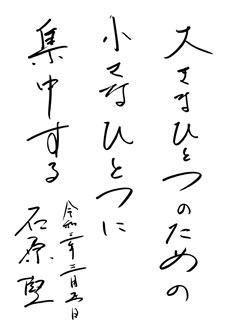 大きなひとつのための
小さなひとつに
集中する
令和三年三月五日
石原